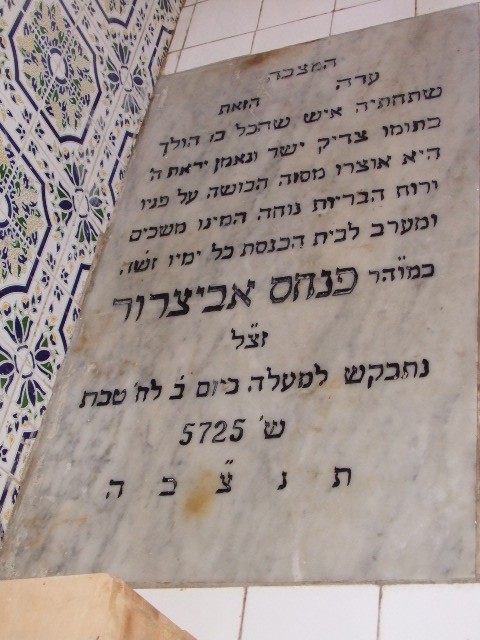 המצבה
עדה הזאת
שתחתיה איש שהכל בו הולך
בתומו צדיק ישר ונאמן יראת ה'
היא אוצרו מסוה הבושה על פניו
ורוח הבריות נוחה המינו משכים
ומערב לבית הכנסת כל ימיו זשה
כמוהר פנחס אביצרור
זצ"ל
נתבקש למעלה ביום ב' לח' טבת
ש' 5725
ת נ צ" ב ה